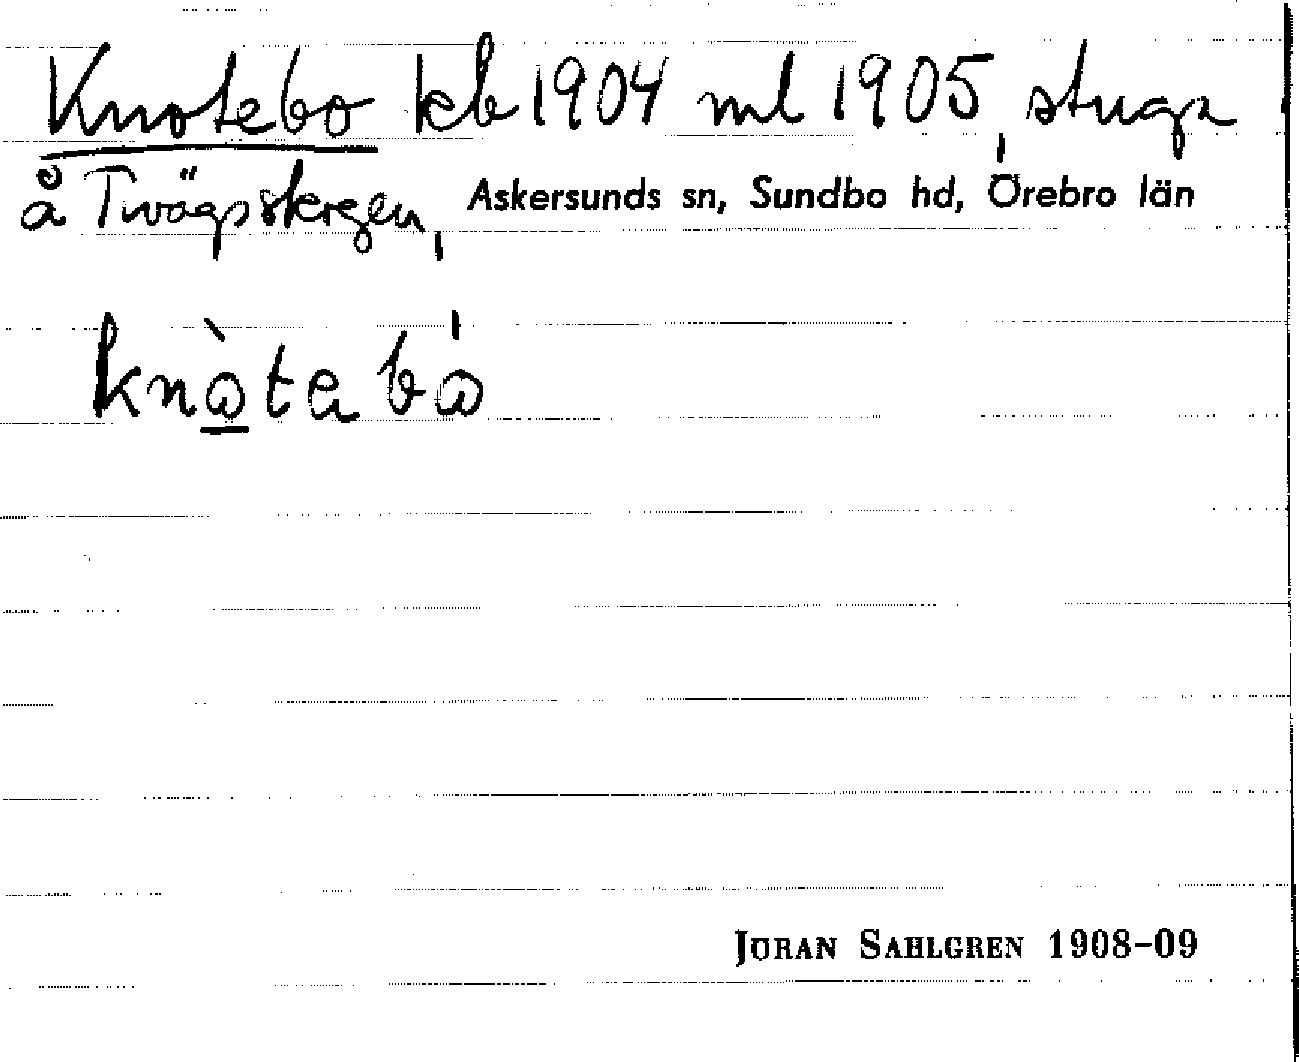 Knotebo kb 1904 ml 1905, stuga
å Tvägpskogen, Askersunds sn, Sundbo hd, Örebro län
knòtabó
JÖRAN SAHLGREN 1908-09